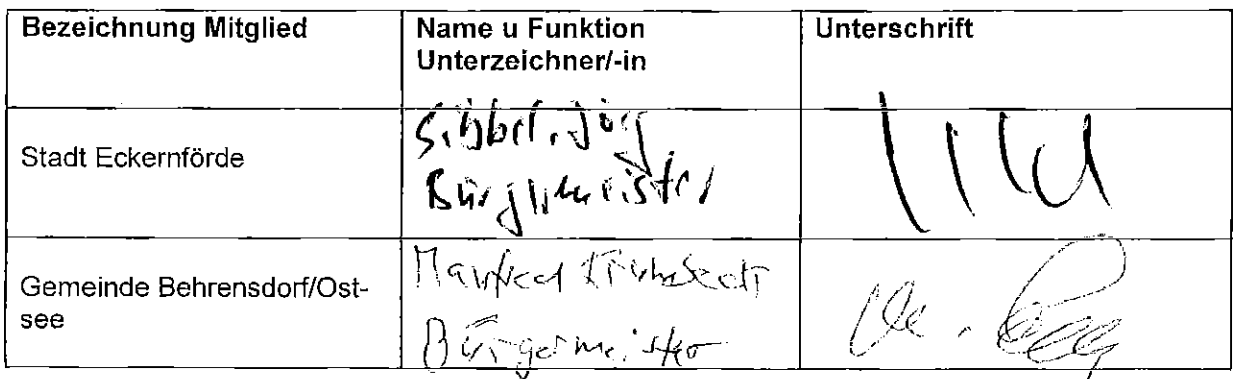 Bezeichnung Mitglied
Name u Funktion
Unterzeichner/-in
Unterschrift
Stadt Eckernförde
Sibbel, Jörg
Bürgermeister
Gemeinde Behrensdorf/Ost-
see
Manfred
Bürgermeister